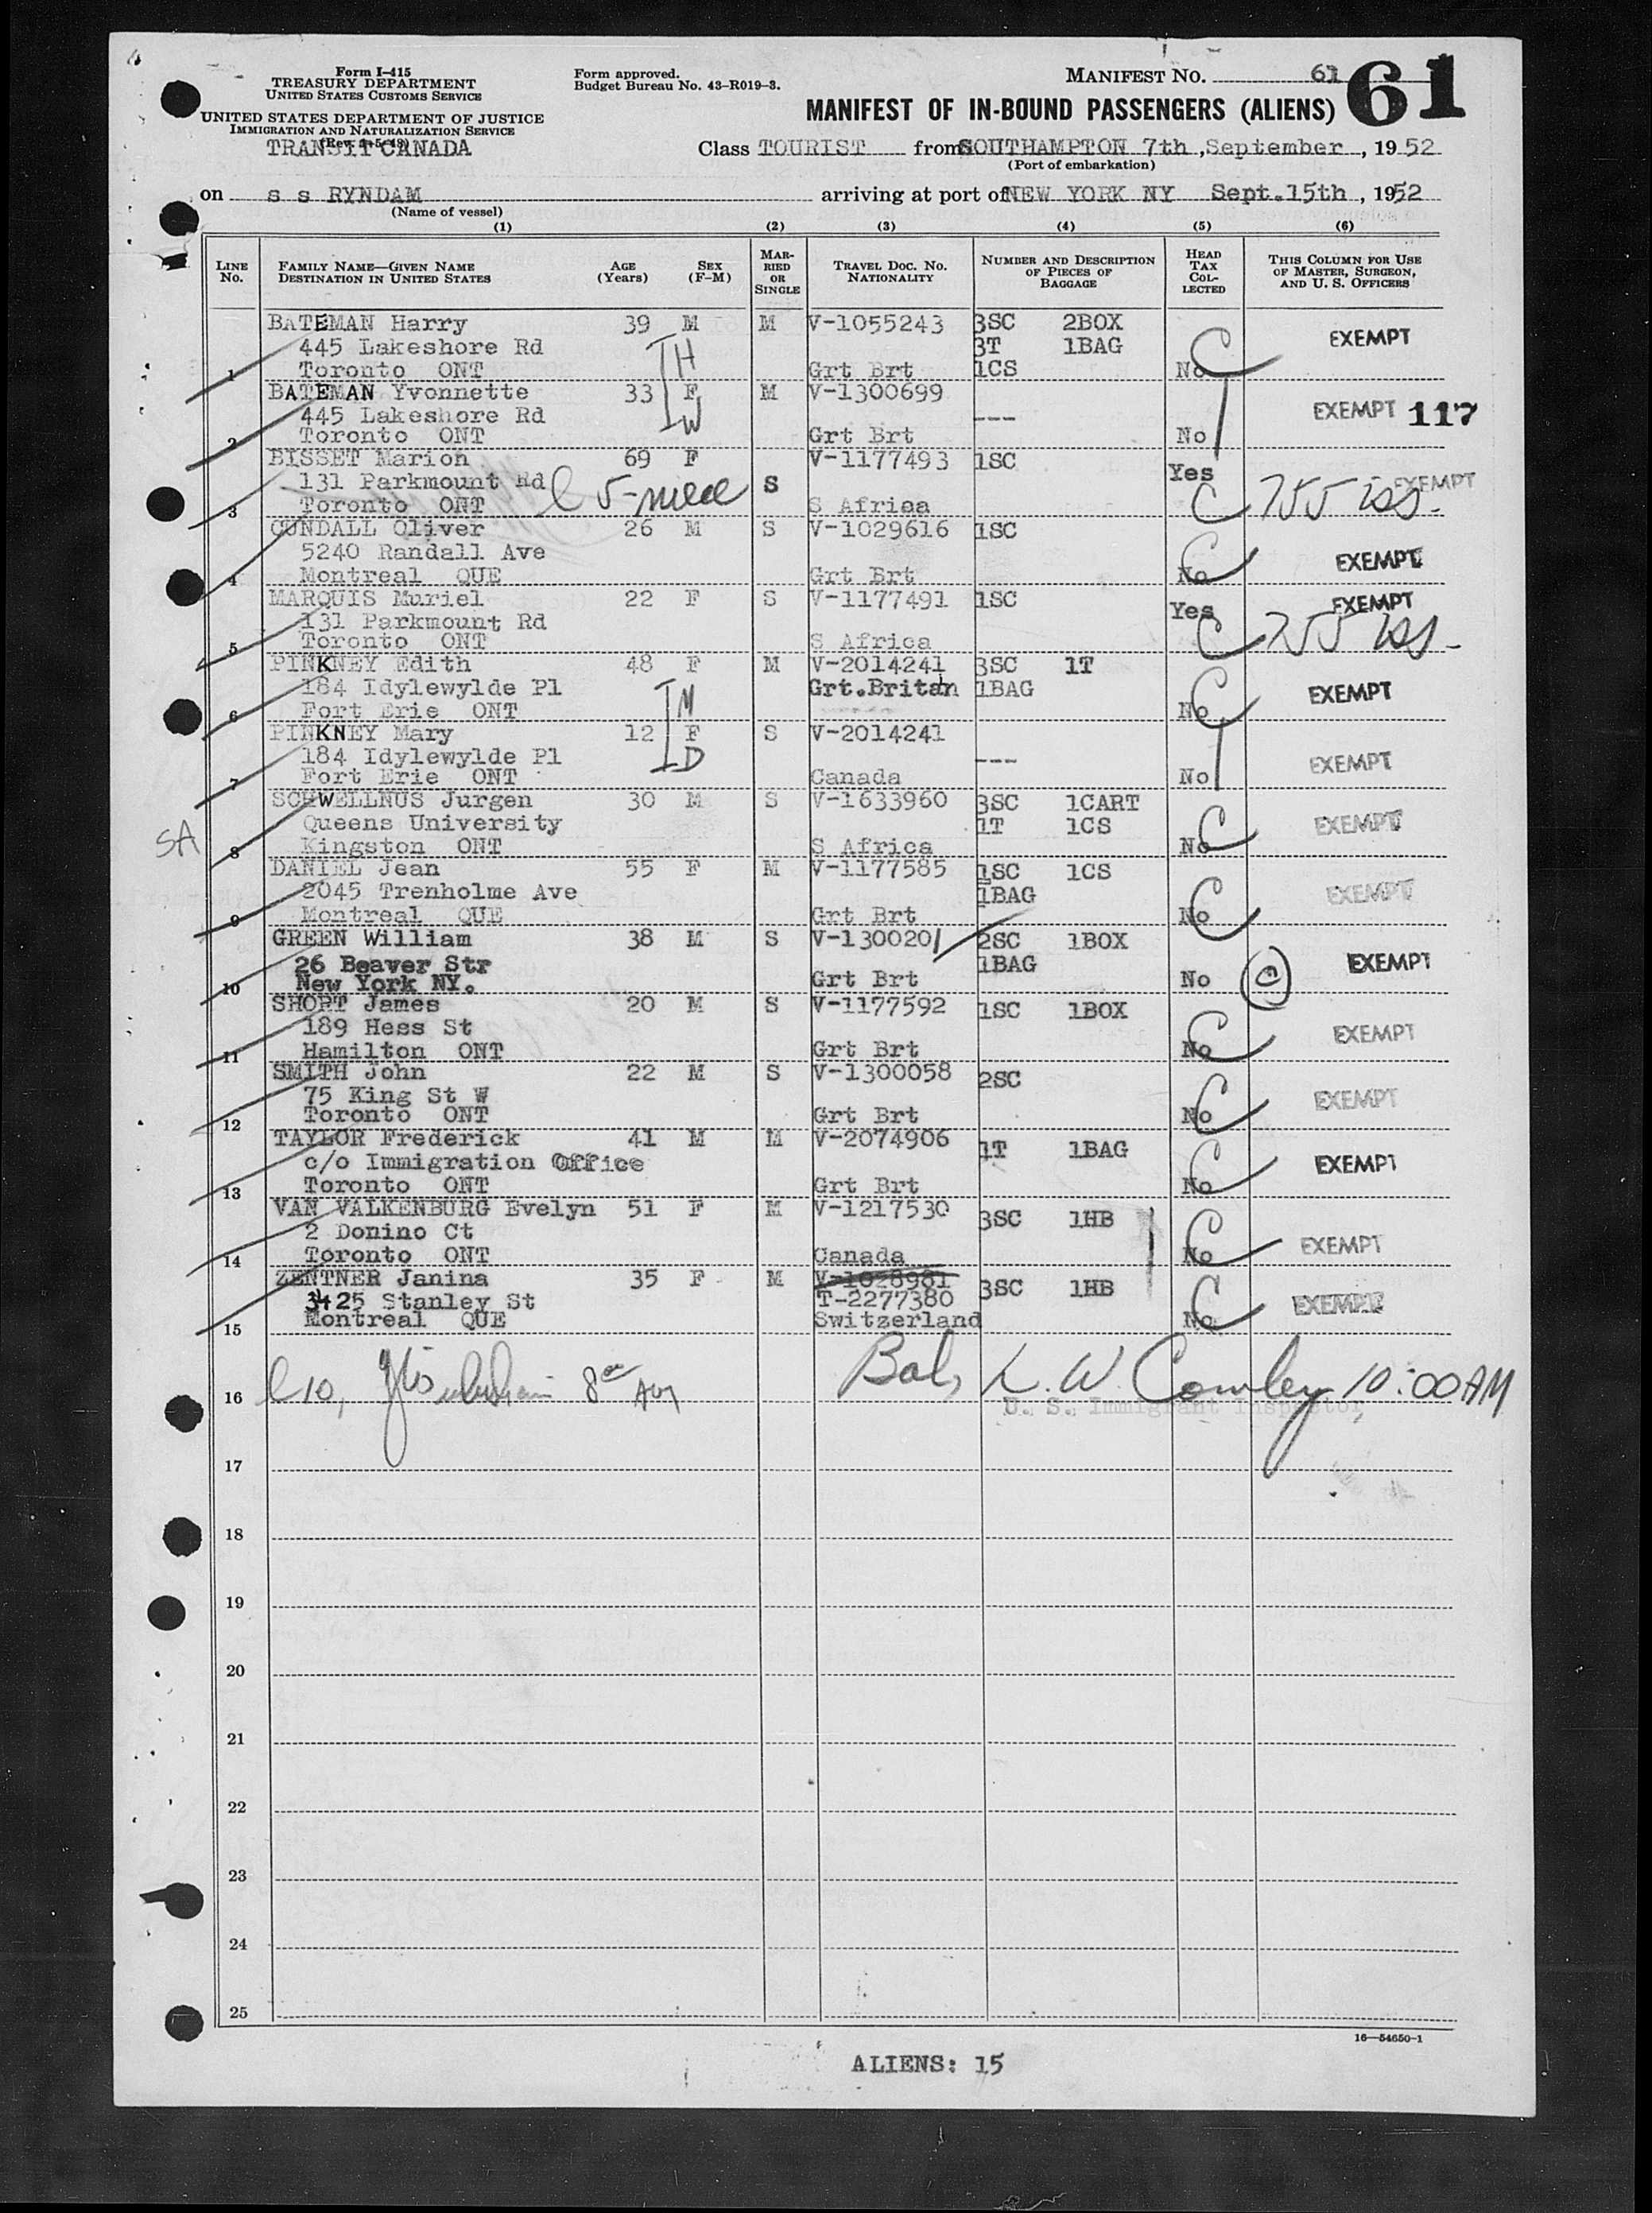 Form I-415
TREASURY DEPARTMENT
UNITED STATES CUSTOMS SERVICE
UNITED STATES DEPARTMENT OF JUSTICE
IMMIGRATION AND NATURALIZATION SERVICE
TRANSIT CANADA
Form approved.
Budget Bureau No. 43-R019-3.
MANIFEST NO. 61
61
MANIFEST OF IN-BOUND PASSENGERS (ALIENS)
Class TOURIST from SOUTHAMPTON 7th, September, 1952
(Port of embarkation)
on s s RYNDAM arriving at port of NEW YORK NY Sept.15th, 1952
(Name of vessel)
(1) (2) (3) (4) (5) (6)
LINE NO. FAMILY NAME—GIVEN NAME DESTINATION IN UNITED STATES AGE (Years) SEX (F-M) MARRIED OR SINGLE TRAVEL DOC. NO. NATIONALITY NUMBER AND DESCRIPTION OF PIECES OF BAGGAGE HEAD TAX COLLECTED THIS COLUMN FOR USE OF MASTER, SURGEON, AND U. S. OFFICERS
BATEMAN Harry 39 M M V-1055243 3SC 2BOX EXEMPT
445 Lakeshore Rd H 3T 1BAG C
1 Toronto ONT Grt Brt 1CS No
BATEMAN Yvonnette 33 F M V-1300699
445 Lakeshore Rd W --- EXEMPT 117
2 Toronto ONT Grt Brt No
BISSET Marion 69 F V-1177493 1SC Yes
131 Parkmount Rd S EXEMPT
3 Toronto ONT S Africa C
CUNDALL Oliver 26 M S V-1029616 1SC
5240 Randall Ave EXEMPT
4 Montreal QUE Grt Brt No C
MARQUIS Muriel 22 F S V-1177491 1SC Yes EXEMPT
131 Parkmount Rd
5 Toronto ONT S Africa C
PINKNEY Edith 48 F M V-2014241 3SC 1T
184 Idylewylde Pl M Grt.Britain 1BAG EXEMPT
6 Fort Erie ONT No C
PINKNEY Mary 12 F S V-2014241
184 Idylewylde Pl D --- EXEMPT
7 Fort Erie ONT Canada No
SCHWELLNUS Jurgen 30 M S V-1633960 3SC 1CART
Queens University 1T 1CS EXEMPT
SA 8 Kingston ONT S Africa No C
DANIEL Jean 55 F M V-1177585 1SC 1CS
2045 Trenholme Ave 1BAG EXEMPT
9 Montreal QUE Grt Brt No C
GREEN William 38 M S V-1300201 2SC 1BOX
26 Beaver Str 1BAG EXEMPT
10 New York NY. Grt Brt No C
SHORT James 20 M S V-1177592 1SC 1BOX
189 Hess St EXEMPT
11 Hamilton ONT Grt Brt No C
SMITH John 22 M S V-1300058 2SC
75 King St W EXEMPT
12 Toronto ONT Grt Brt No C
TAYLOR Frederick 41 M M V-2074906 1T 1BAG
c/o Immigration Office EXEMPT
13 Toronto ONT Grt Brt No C
VAN VALKENBURG Evelyn 51 F M V-1217530 3SC 1HB
2 Donino Ct EXEMPT
14 Toronto ONT Canada No C
ZENTNER Janina 35 F M V-1028981 3SC 1HB
3425 Stanley St T-2277380 EXEMPT
15 Montreal QUE Switzerland No C
16 Bal, L. W. Cowley 10:00AM
U. S. Immigrant Inspector
17
18
19
20
21
22
23
24
25
16—54650-1
ALIENS: 15